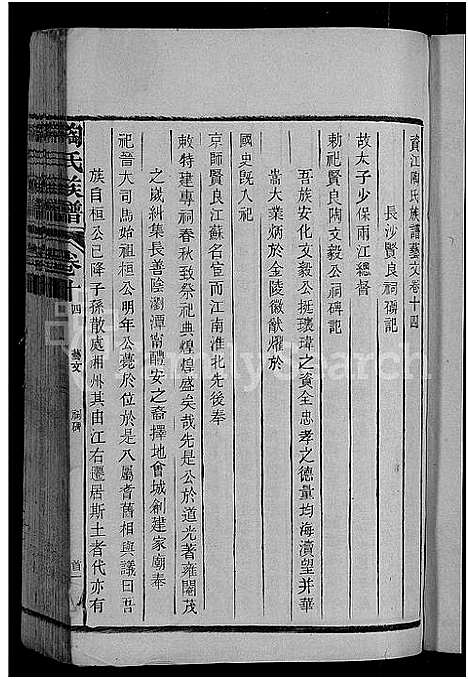 資江陶氏族譜藝文卷十四
長沙賢良祠碑記
故太子少保兩江總督
勅祀賢良陶文毅公祠碑記
吾族安化文毅公挺瓌瑋之資全忠孝之德量均海瀆望并華
嵩大業炳於金陵徽猷燿於
國史旣入祀
京師賢良江蘇名宦而江南淮北先後奉
敕特建專祠春秋致祭祀典煌煌盛矣哉先是公於道光著雍閹茂
之歲糾集長善陰瀏潭甯醴安之裔擇地會城創建家廟奉
祀晉大司馬始祖桓公明年公薨於位於是八屬耆舊相與議曰吾
族自桓公已降子孫散處湘州其由江右遷居斯土者代亦有
陶氏族譜 卷十四 藝文 祠碑 首一
familysearch